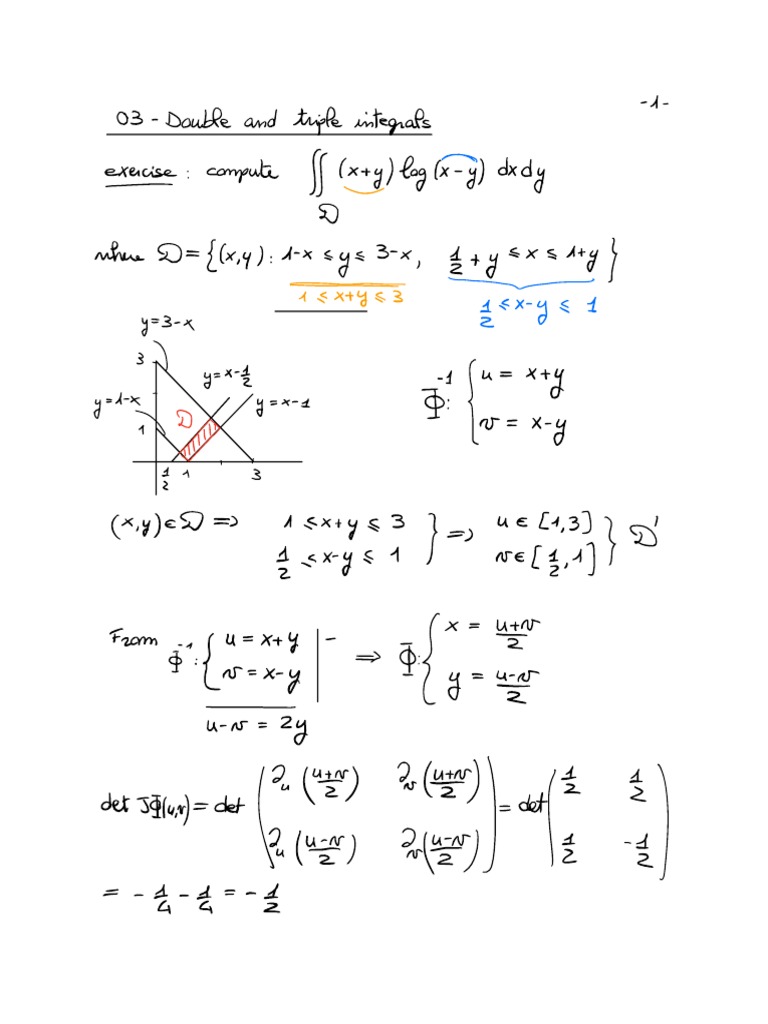 -1-
03 - Double and triple integrals
exercise: compute ∬_D (x+y) log (x-y) dx dy
where D = {(x,y): 1-x ≤ y ≤ 3-x, 1/2 + y ≤ x ≤ 1+y}
1 ≤ x+y ≤ 3
1/2 ≤ x-y ≤ 1
y = 3-x
3
y = x - 1/2
y = 1-x
y = x-1
D
1
1/2 1 3
Φ^-1: { u = x+y
v = x-y
(x,y) ∈ D => 1 ≤ x+y ≤ 3 } => u ∈ [1,3] } D'
1/2 ≤ x-y ≤ 1 v ∈ [1/2, 1]
From Φ^-1: { u = x+y | - => Φ: { x = (u+v)/2
v = x-y y = (u-v)/2
u-v = 2y
det JΦ(u,v) = det ( ∂_u ((u+v)/2) ∂_v ((u+v)/2) ) = det ( 1/2 1/2 )
∂_u ((u-v)/2) ∂_v ((u-v)/2) 1/2 -1/2
= - 1/4 - 1/4 = - 1/2